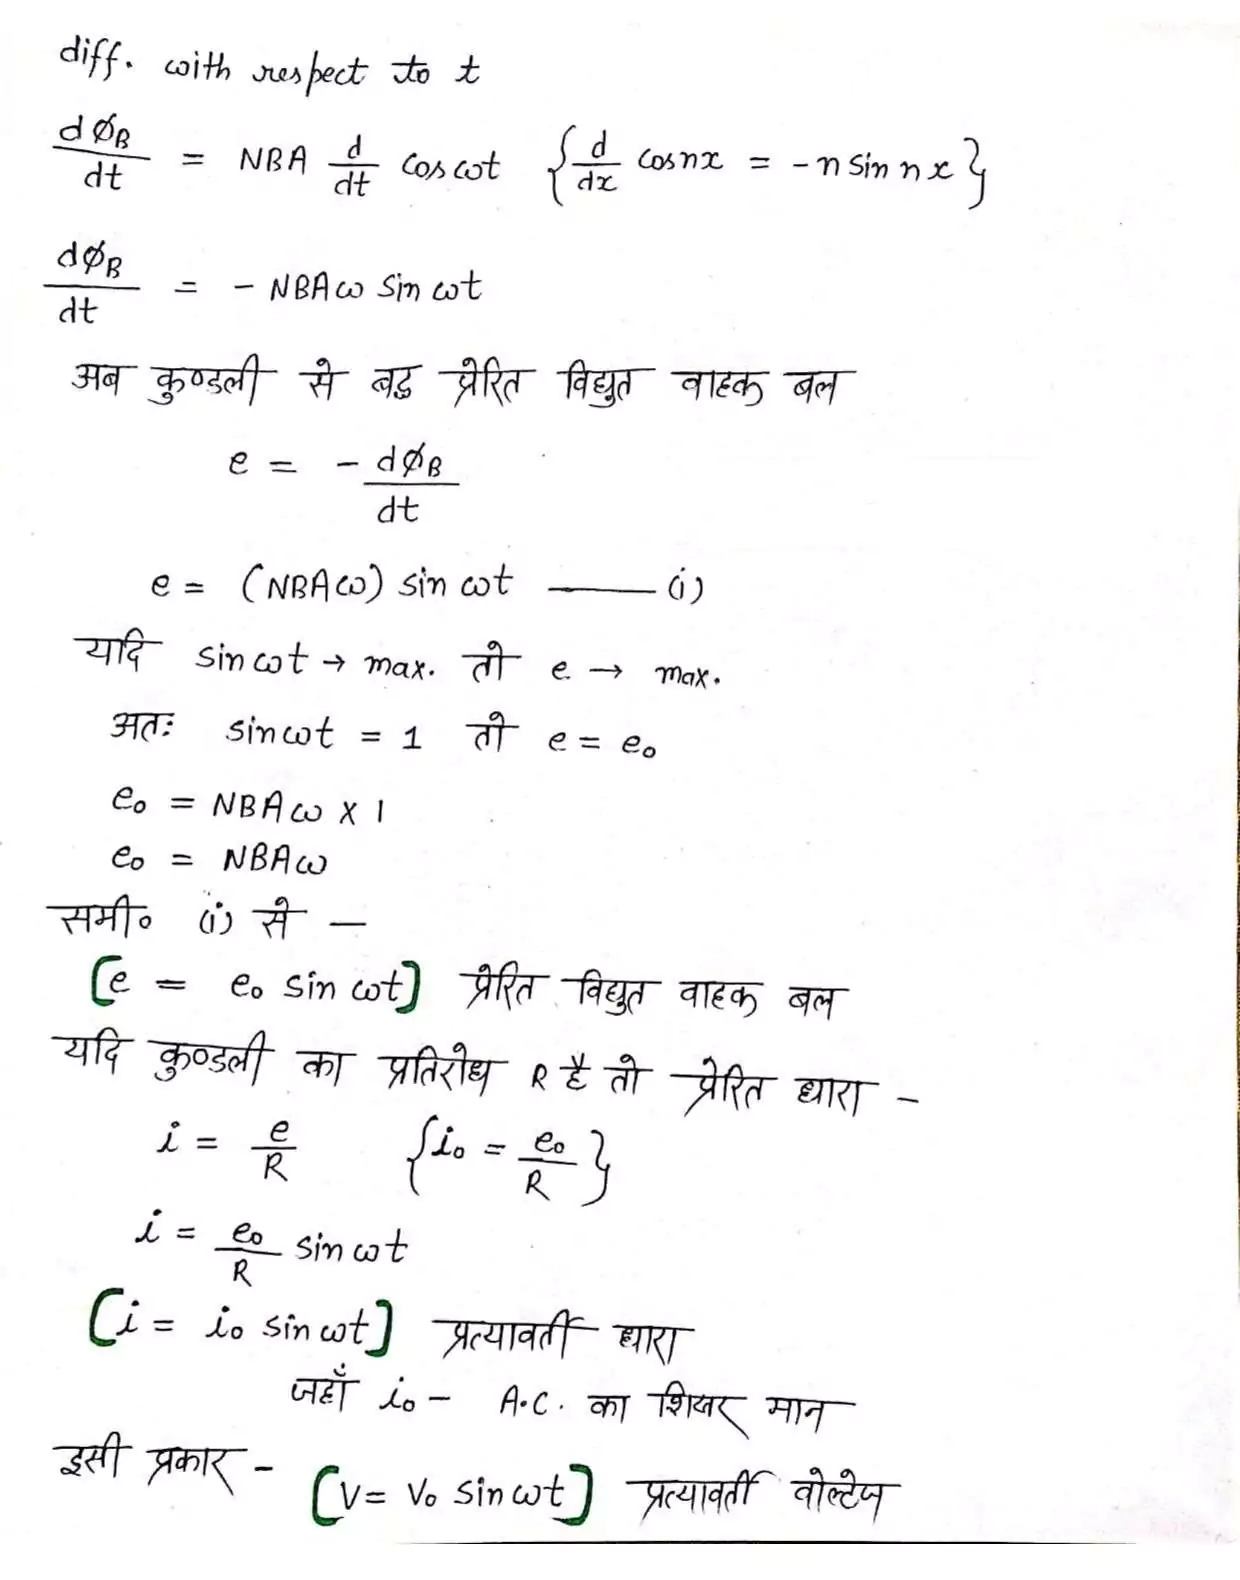 diff. with respect to t
dØB/dt = NBA d/dt cosωt {d/dx cosnx = -n sin nx}
dØB/dt = - NBAω sin ωt
अब कुण्डली से बद्ध प्रेरित विद्युत वाहक बल
e = - dØB/dt
e = (NBAω) sin ωt —— (i)
यदि sin ωt → max. तो e → max.
अतः sin ωt = 1 तो e = e₀
e₀ = NBAω x 1
e₀ = NBAω
समी० (i) से —
[e = e₀ sin ωt] प्रेरित विद्युत वाहक बल
यदि कुण्डली का प्रतिरोध R है तो प्रेरित धारा -
i = e/R {i₀ = e₀/R}
i = e₀/R sin ωt
[i = i₀ sin ωt] प्रत्यावर्ती धारा
जहाँ i₀ - A.C. का शिखर मान
इसी प्रकार - [V = V₀ sin ωt] प्रत्यावर्ती वोल्टेज